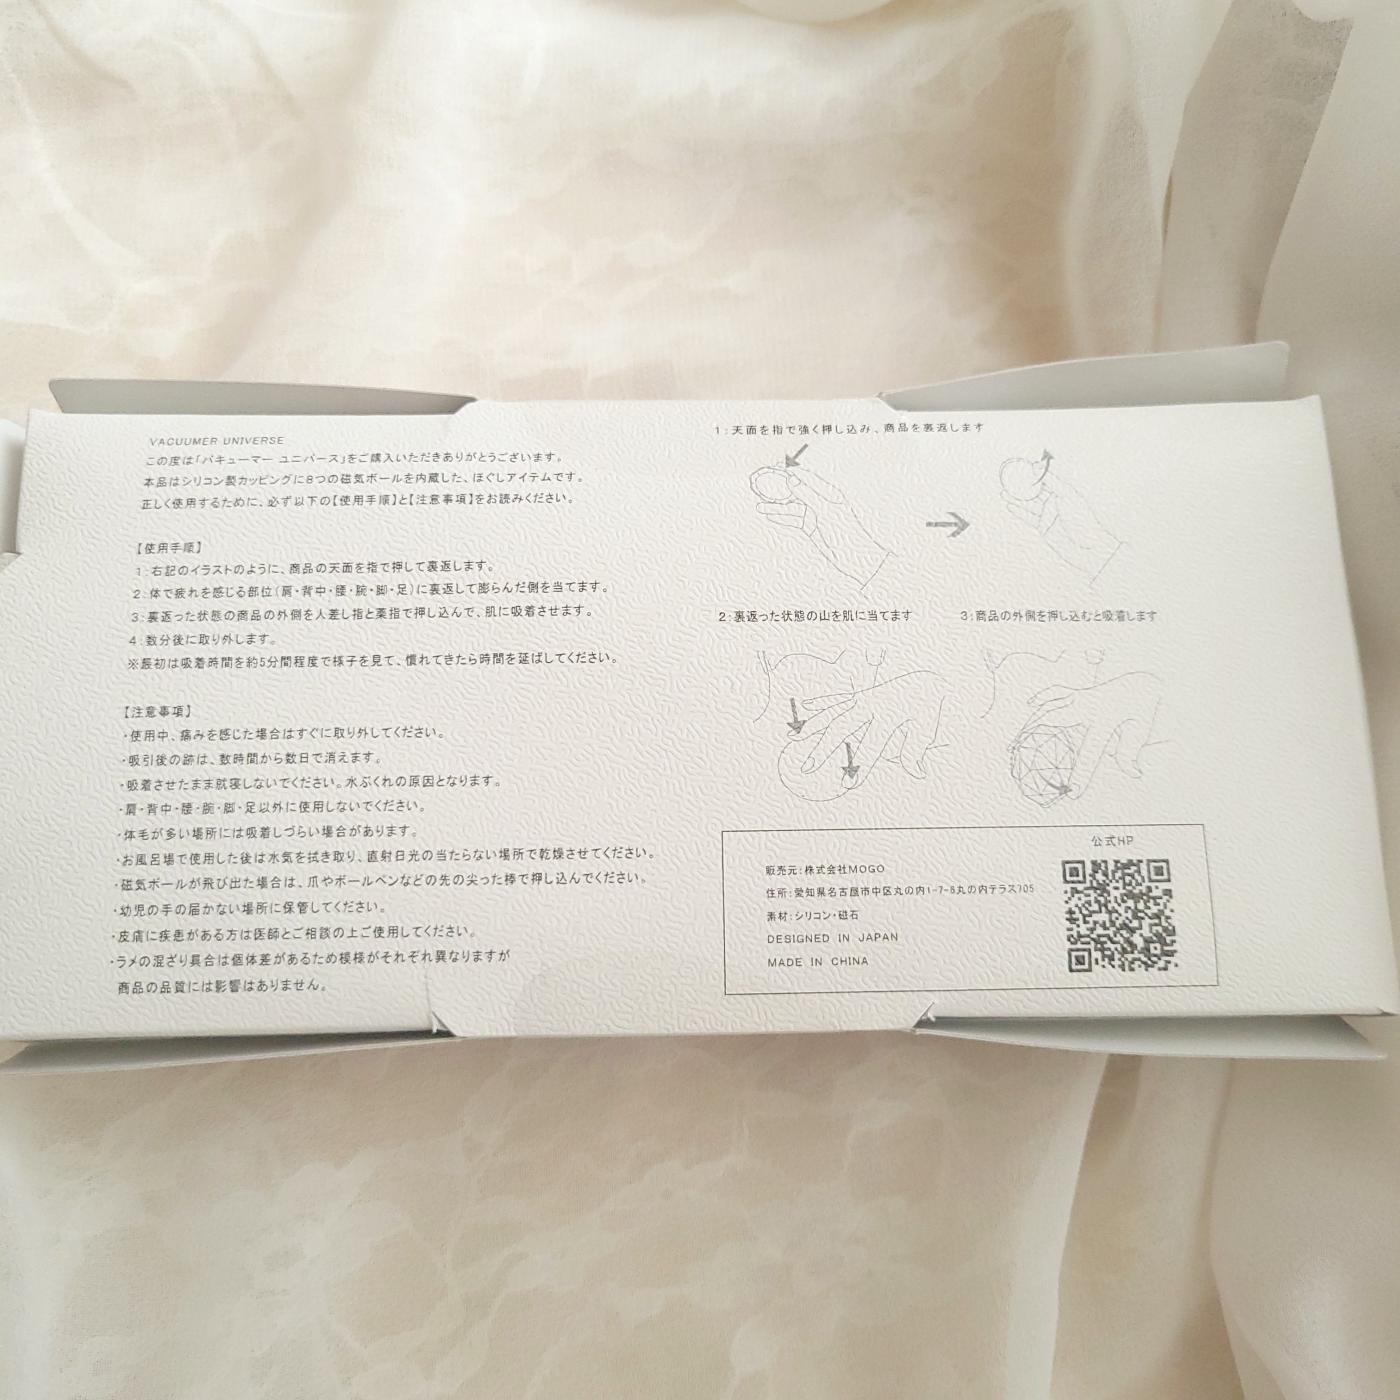 VACUUMER UNIVERSE
この度は「バキューマー ユニバース」をご購入いただきありがとうございます。
本品はシリコン製カッピングに8つの磁気ボールを内蔵した、ほぐしアイテムです。
正しく使用するために、必ず以下の【使用手順】と【注意事項】をお読みください。
【使用手順】
1:右記のイラストのように、商品の天面を指で押して裏返します。
2:体で疲れを感じる部位(肩・背中・腰・腕・脚・足)に裏返して膨らんだ側を当てます。
3:裏返った状態の商品の外側を人差し指と薬指で押し込んで、肌に吸着させます。
4:数分後に取り外します。
※最初は吸着時間を約5分間程度で様子を見て、慣れてきたら時間を延ばしてください。
【注意事項】
・使用中、痛みを感じた場合はすぐに取り外してください。
・吸引後の跡は、数時間から数日で消えます。
・吸着させたまま就寝しないでください。水ぶくれの原因となります。
・肩・背中・腰・腕・脚・足以外に使用しないでください。
・体毛が多い場所には吸着しづらい場合があります。
・お風呂場で使用した後は水気を拭き取り、直射日光の当たらない場所で乾燥させてください。
・磁気ボールが飛び出た場合は、爪やボールペンなどの先の尖った棒で押し込んでください。
・幼児の手の届かない場所に保管してください。
・皮膚に疾患がある方は医師とご相談の上ご使用してください。
・ラメの混ざり具合は個体差があるため模様がそれぞれ異なりますが
商品の品質には影響はありません。
1:天面を指で強く押し込み、商品を裏返します
2:裏返った状態の山を肌に当てます
3:商品の外側を押し込むと吸着します
公式HP
販売元:株式会社MOGO
住所:愛知県名古屋市中区丸の内1-7-8丸の内テラス705
素材:シリコン・磁石
DESIGNED IN JAPAN
MADE IN CHINA